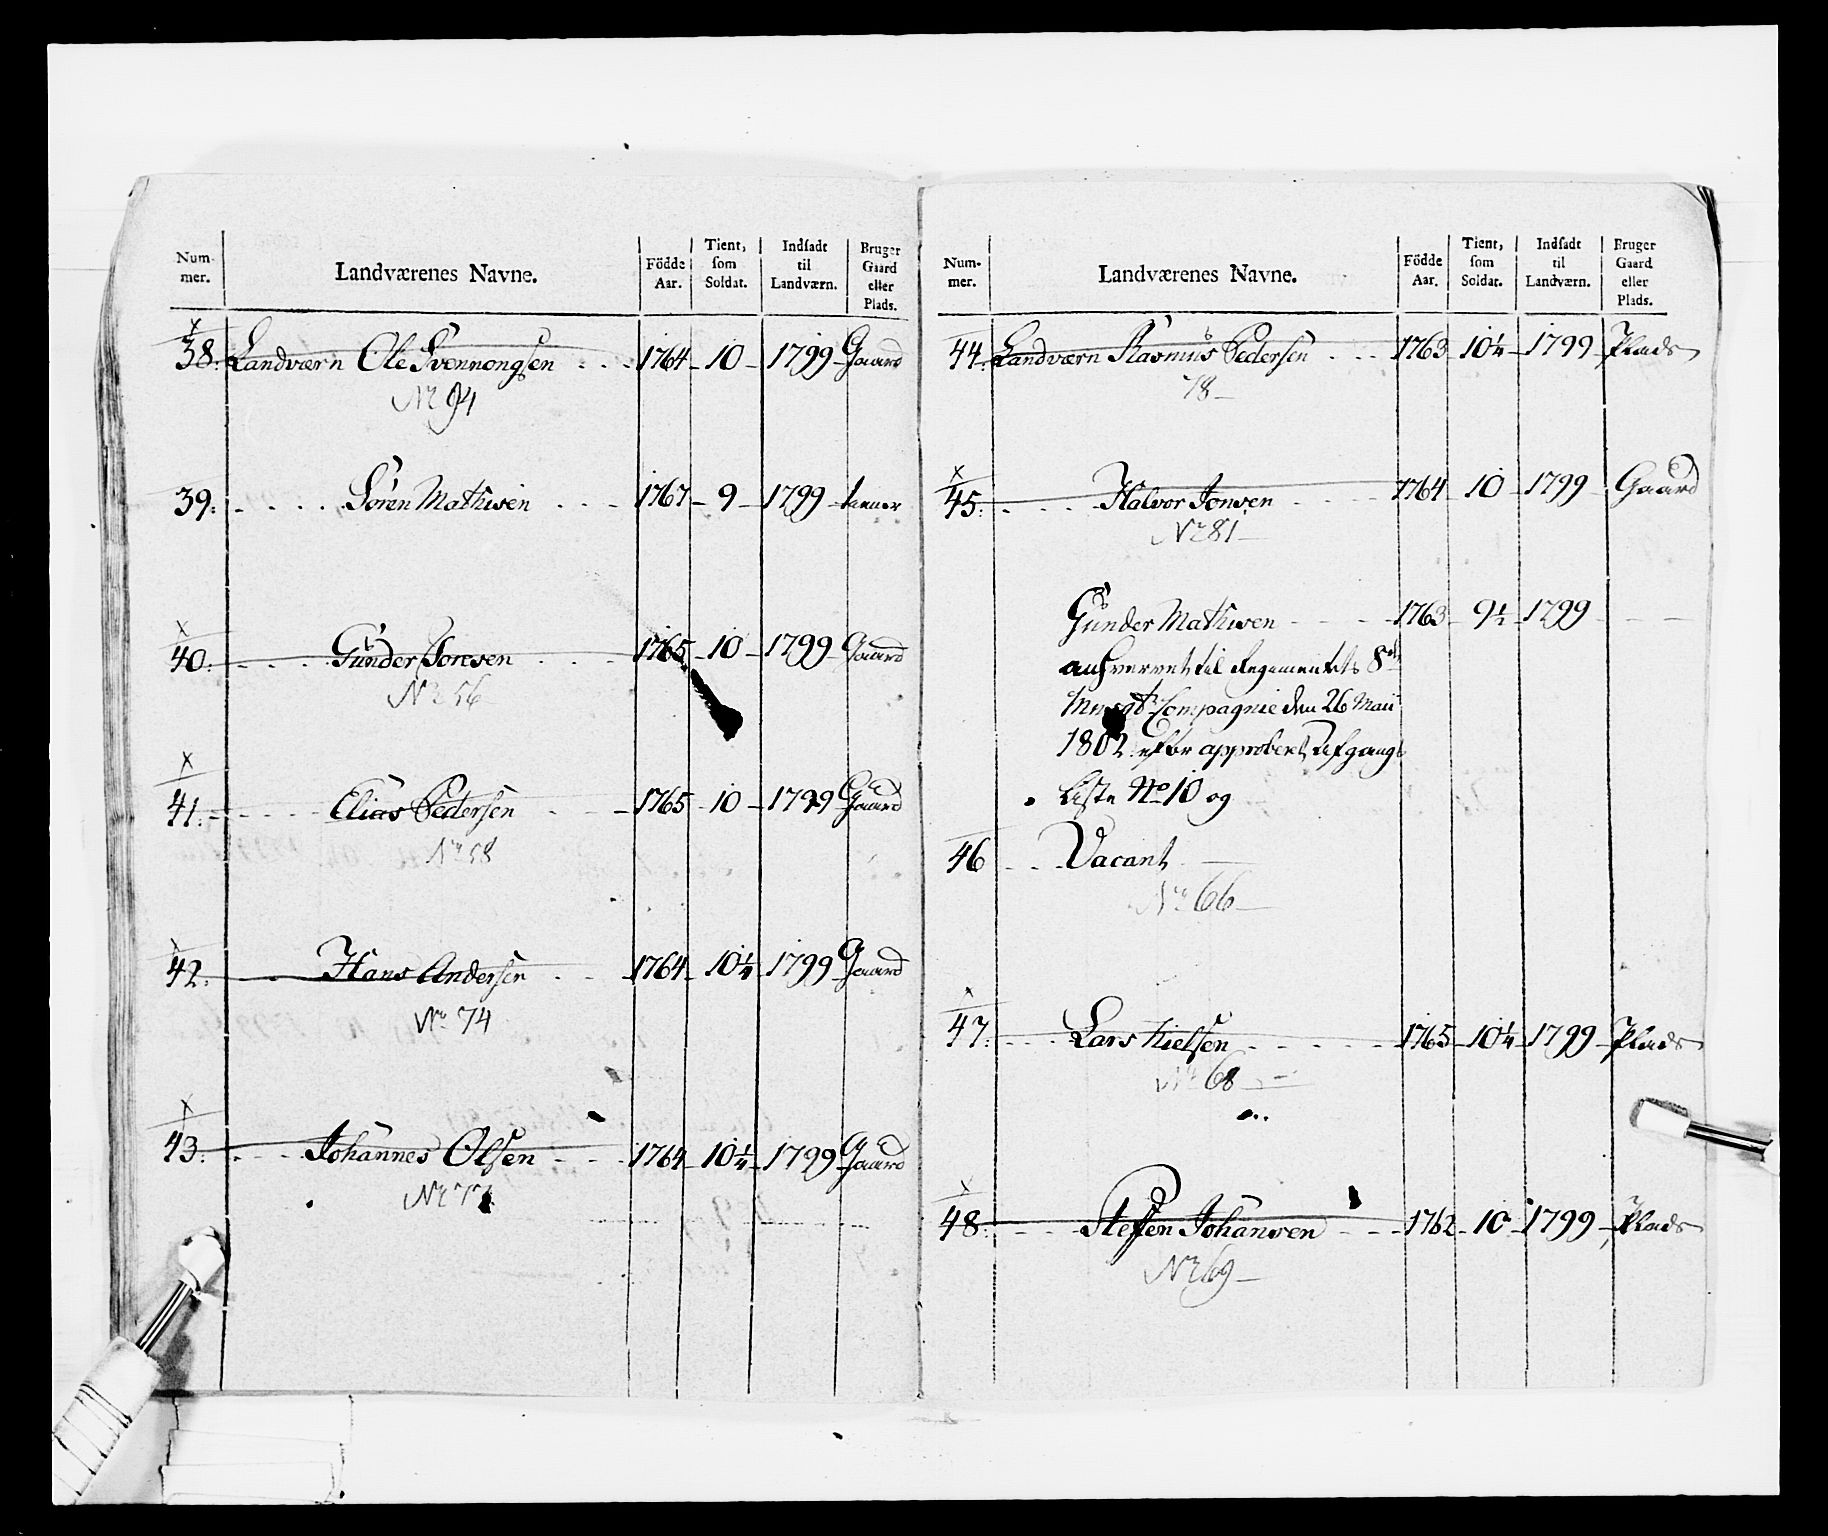 Num-
mer.
Landværenes Navne.
Födde
Aar.
Tient,
som
Soldat.
Indsadt
til
Landværn.
Bruger
Gaard
eller
Plads.
38. Landværn Ole Svennongsen 1764 10 1799 Gaard
No 94
39. Sören Mathisen 1767 9 1799
40. Gunder Jonsen 1765 10 1799 Gaard
No 56
41. Elias Pedersen 1765 10 1799 Gaard
No 58
42. Hans Andersen 1764 10¼ 1799 Gaard
No 74
43. Johannes Olsen 1764 10¼ 1799 Gaard
Num-
mer.
Landværenes Navne.
Födde
Aar.
Tient,
som
Soldat.
Indsadt
til
Landværn.
Bruger
Gaard
eller
Plads.
44. Landværn Rasmus Pedersen 1763 10¼ 1799 Plads
78
45. Halvor Jonsen 1764 10 1799 Gaard
No 81
Gunder Mathisen 1763 9½ 1799
til Regimentets 8de
Compagnie den 26 Maii
1802 efter approberet Afgangs
Liste No 10 og
46 Vacant
No 66
47. Lars Nielsen 1765 10¼ 1799 Plads
No 68
48. Steffen Johansen 1762 10 1799 Plads
No 69